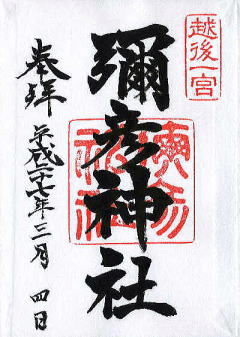 越後一宮
彌彦神社
奉拝
平成二十七年三月四日